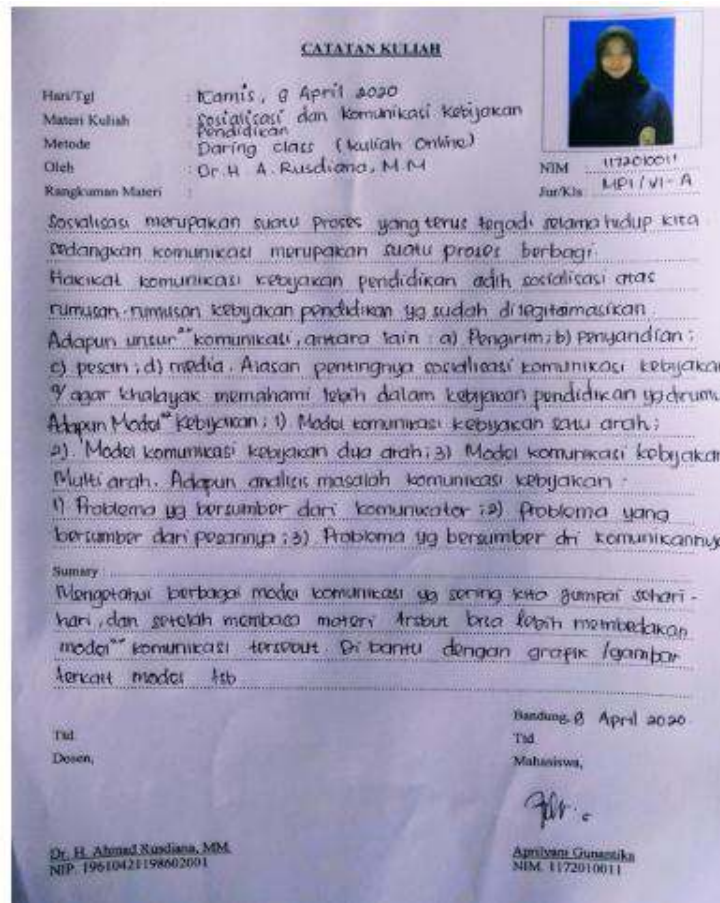 CATATAN KULIAH
Hari/Tgl : Kamis, 8 April 2020
Materi Kuliah : Sosialisasi dan Komunikasi Kebijakan Pendidikan
Metode : Daring class (kuliah Online)
Oleh : Dr. H. A. Rusdiana, M.M
Rangkuman Materi :
NIM 1172010011
Jur/Kls MPI / VI - A
Sosialisasi merupakan suatu proses yang terus terjadi selama hidup kita
sedangkan komunikasi merupakan suatu proses berbagi.
Hakikat komunikasi kebijakan pendidikan adlh sosialisasi atas
rumusan-rumusan kebijakan pendidikan yg sudah dilegitamasikan.
Adapun unsur" komunikasi, antara lain : a) Pengirim; b) Penyandian;
c) pesan; d) media. Alasan pentingnya sosialisasi komunikasi kebijakan
agar khalayak memahami lebih dalam kebijakan pendidikan yg dirumu
Adapun Model" Kebijakan; 1) Model komunikasi kebijakan satu arah;
2). Model komunikasi kebijakan dua arah; 3) Model komunikasi kebijakan
Multi arah. Adapun analisis masalah komunikasi kebijakan :
1) Problema yg bersumber dari komunikator; 2) Problema yang
bersumber dari pesannya; 3) Problema yg bersumber dri komunikannya
Sumary :
Mengetahui berbagai model komunikasi yg sering kita jumpai sehari-
hari, dan setelah membaca materi trsbut bisa lebih membedakan
model" komunikasi tersebut. Di bantu dengan grafik /gambar
terkait model tsb
Bandung, 8 April 2020
Ttd
Dosen,
Ttd
Mahasiswa,
Dr. H. Ahmad Rusdiana, MM.
NIP. 196104211198602001
Aprilyani Gunantika
NIM. 1172010011